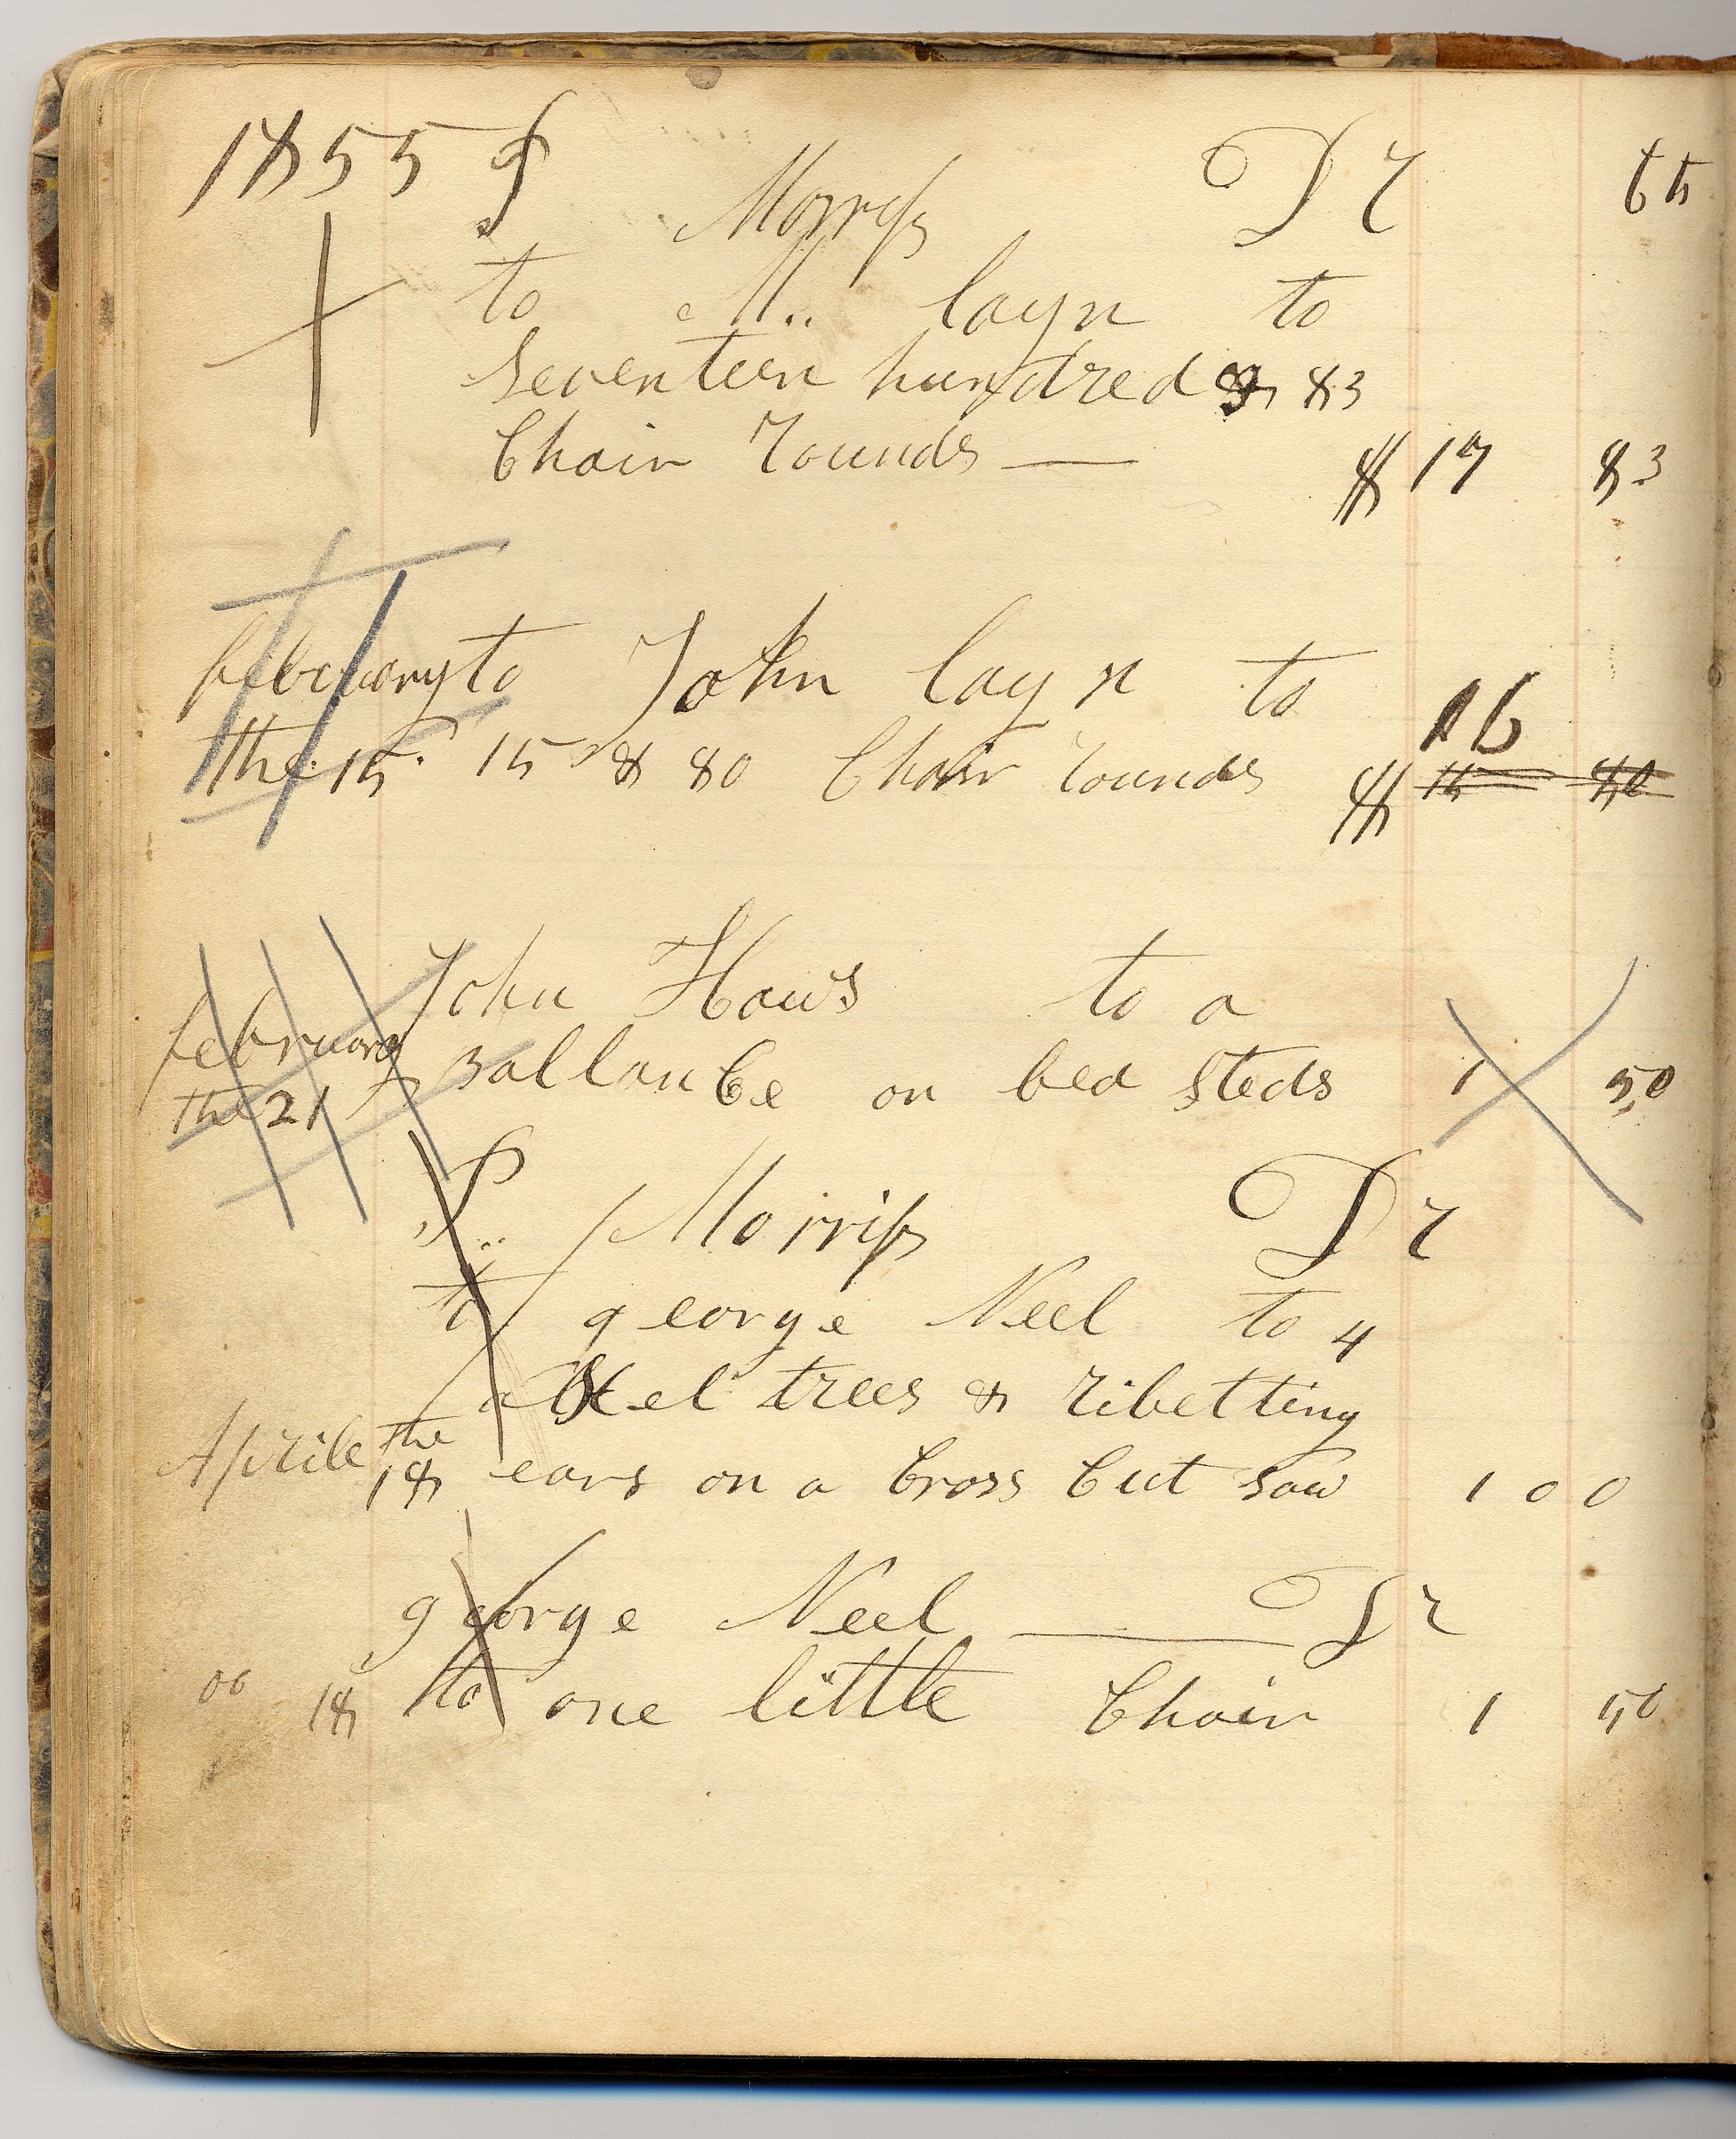 1855 S Morriss Dr cts
to M.. layn to
seventeen hundred & 83
Chair rounds — $ 17 83
february to John layn to
the 15 15 & 80 Chair rounds $ 16
15 80
John Haws to a
february
ballance on bed steds 1 50
the 21
S.. Morriss Dr
to george Neel to 4
axel trees & ribetting
Aprile the
18 ears on a Cross Cut saw 1 00
george Neel — Dr
00 18 to one little Chair 1 50